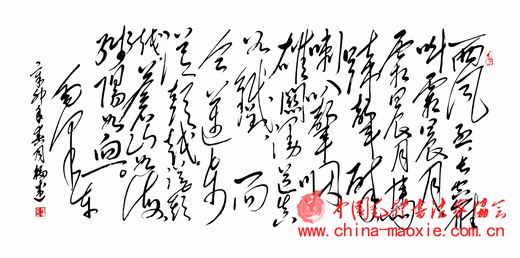 西风烈长空雁
叫霜晨月
霜晨月马
蹄声碎
喇叭声咽
雄关漫道真
如铁而
今迈步
从头越从头
越苍山如海
残阳如血。
毛泽东
辛卯年春月
中国毛体书法家协会
www.china-maoxie.com.cn